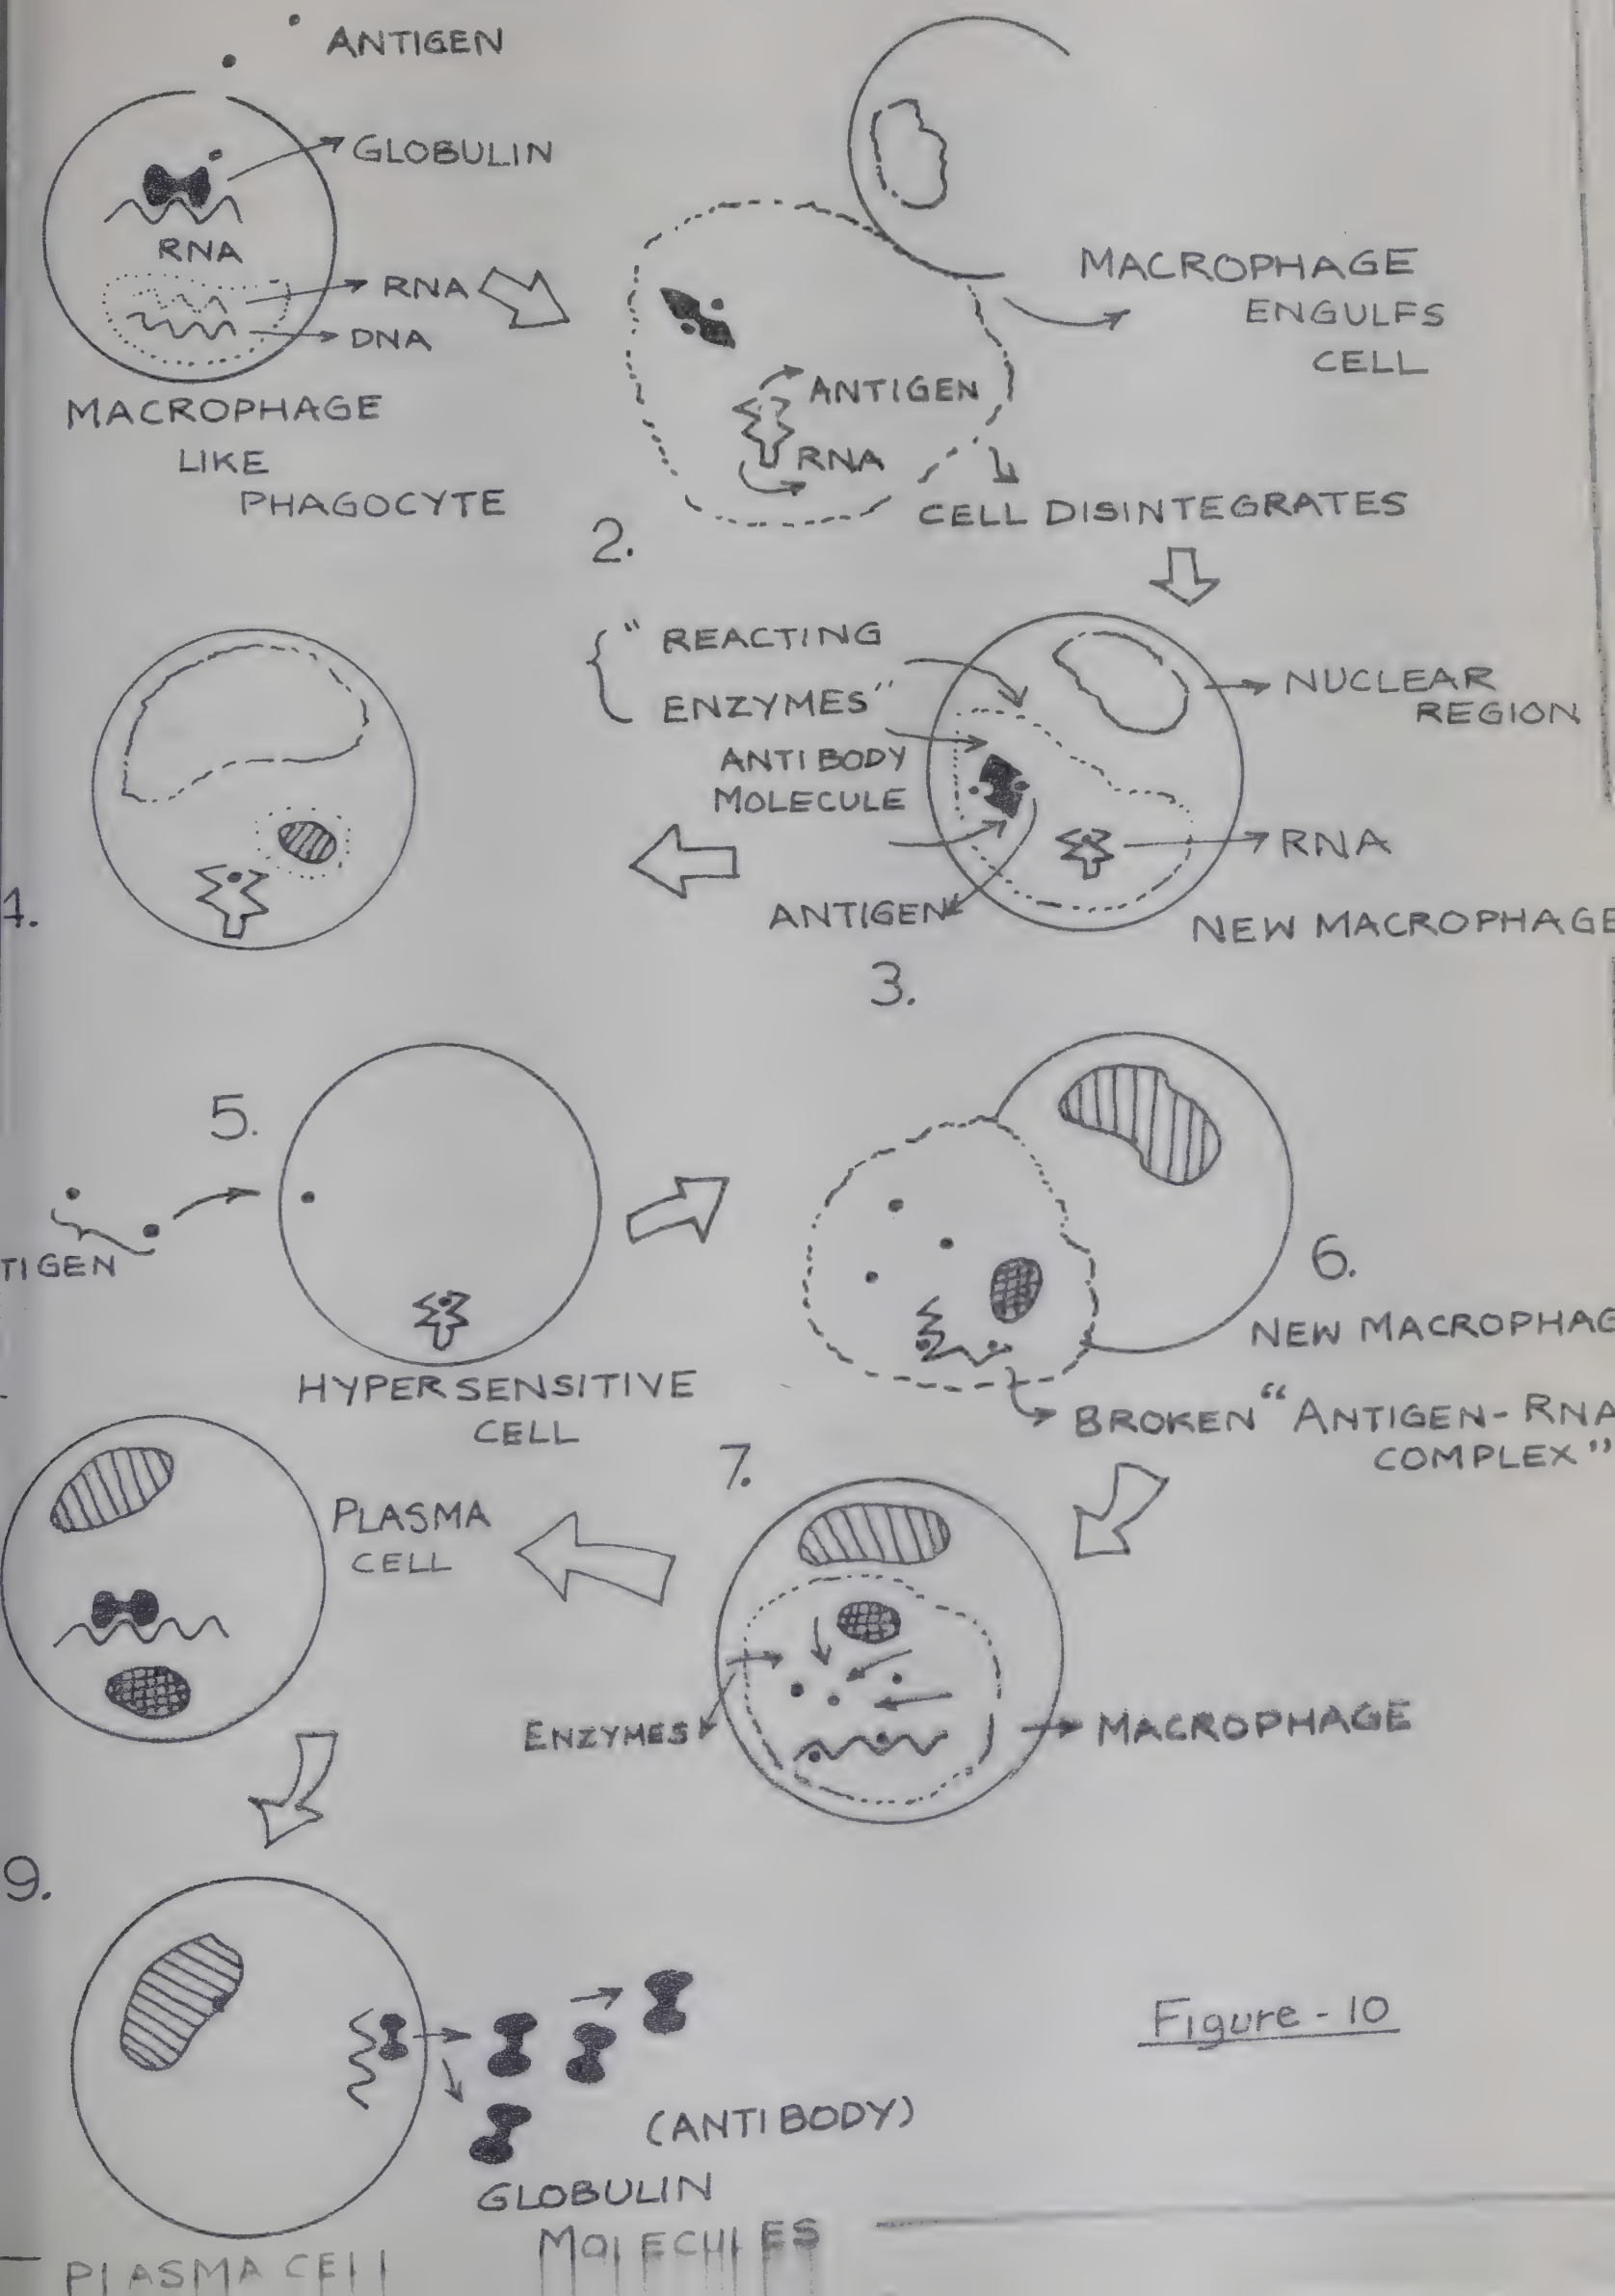 ANTIGEN
GLOBULIN
RNA
RNA
DNA
MACROPHAGE
LIKE
PHAGOCYTE
MACROPHAGE
ENGULFS
CELL
ANTIGEN
RNA
CELL DISINTEGRATES
2.
"REACTING
ENZYMES"
ANTIBODY
MOLECULE
NUCLEAR
REGION
RNA
ANTIGEN
NEW MACROPHAGE
3.
4.
5.
TIGEN
HYPERSENSITIVE
CELL
6.
NEW MACROPHAG
BROKEN "ANTIGEN-RNA
COMPLEX"
7.
PLASMA
CELL
ENZYMES
MACROPHAGE
9.
(ANTIBODY)
GLOBULIN
MOLECULES
PLASMA CELL
Figure - 10